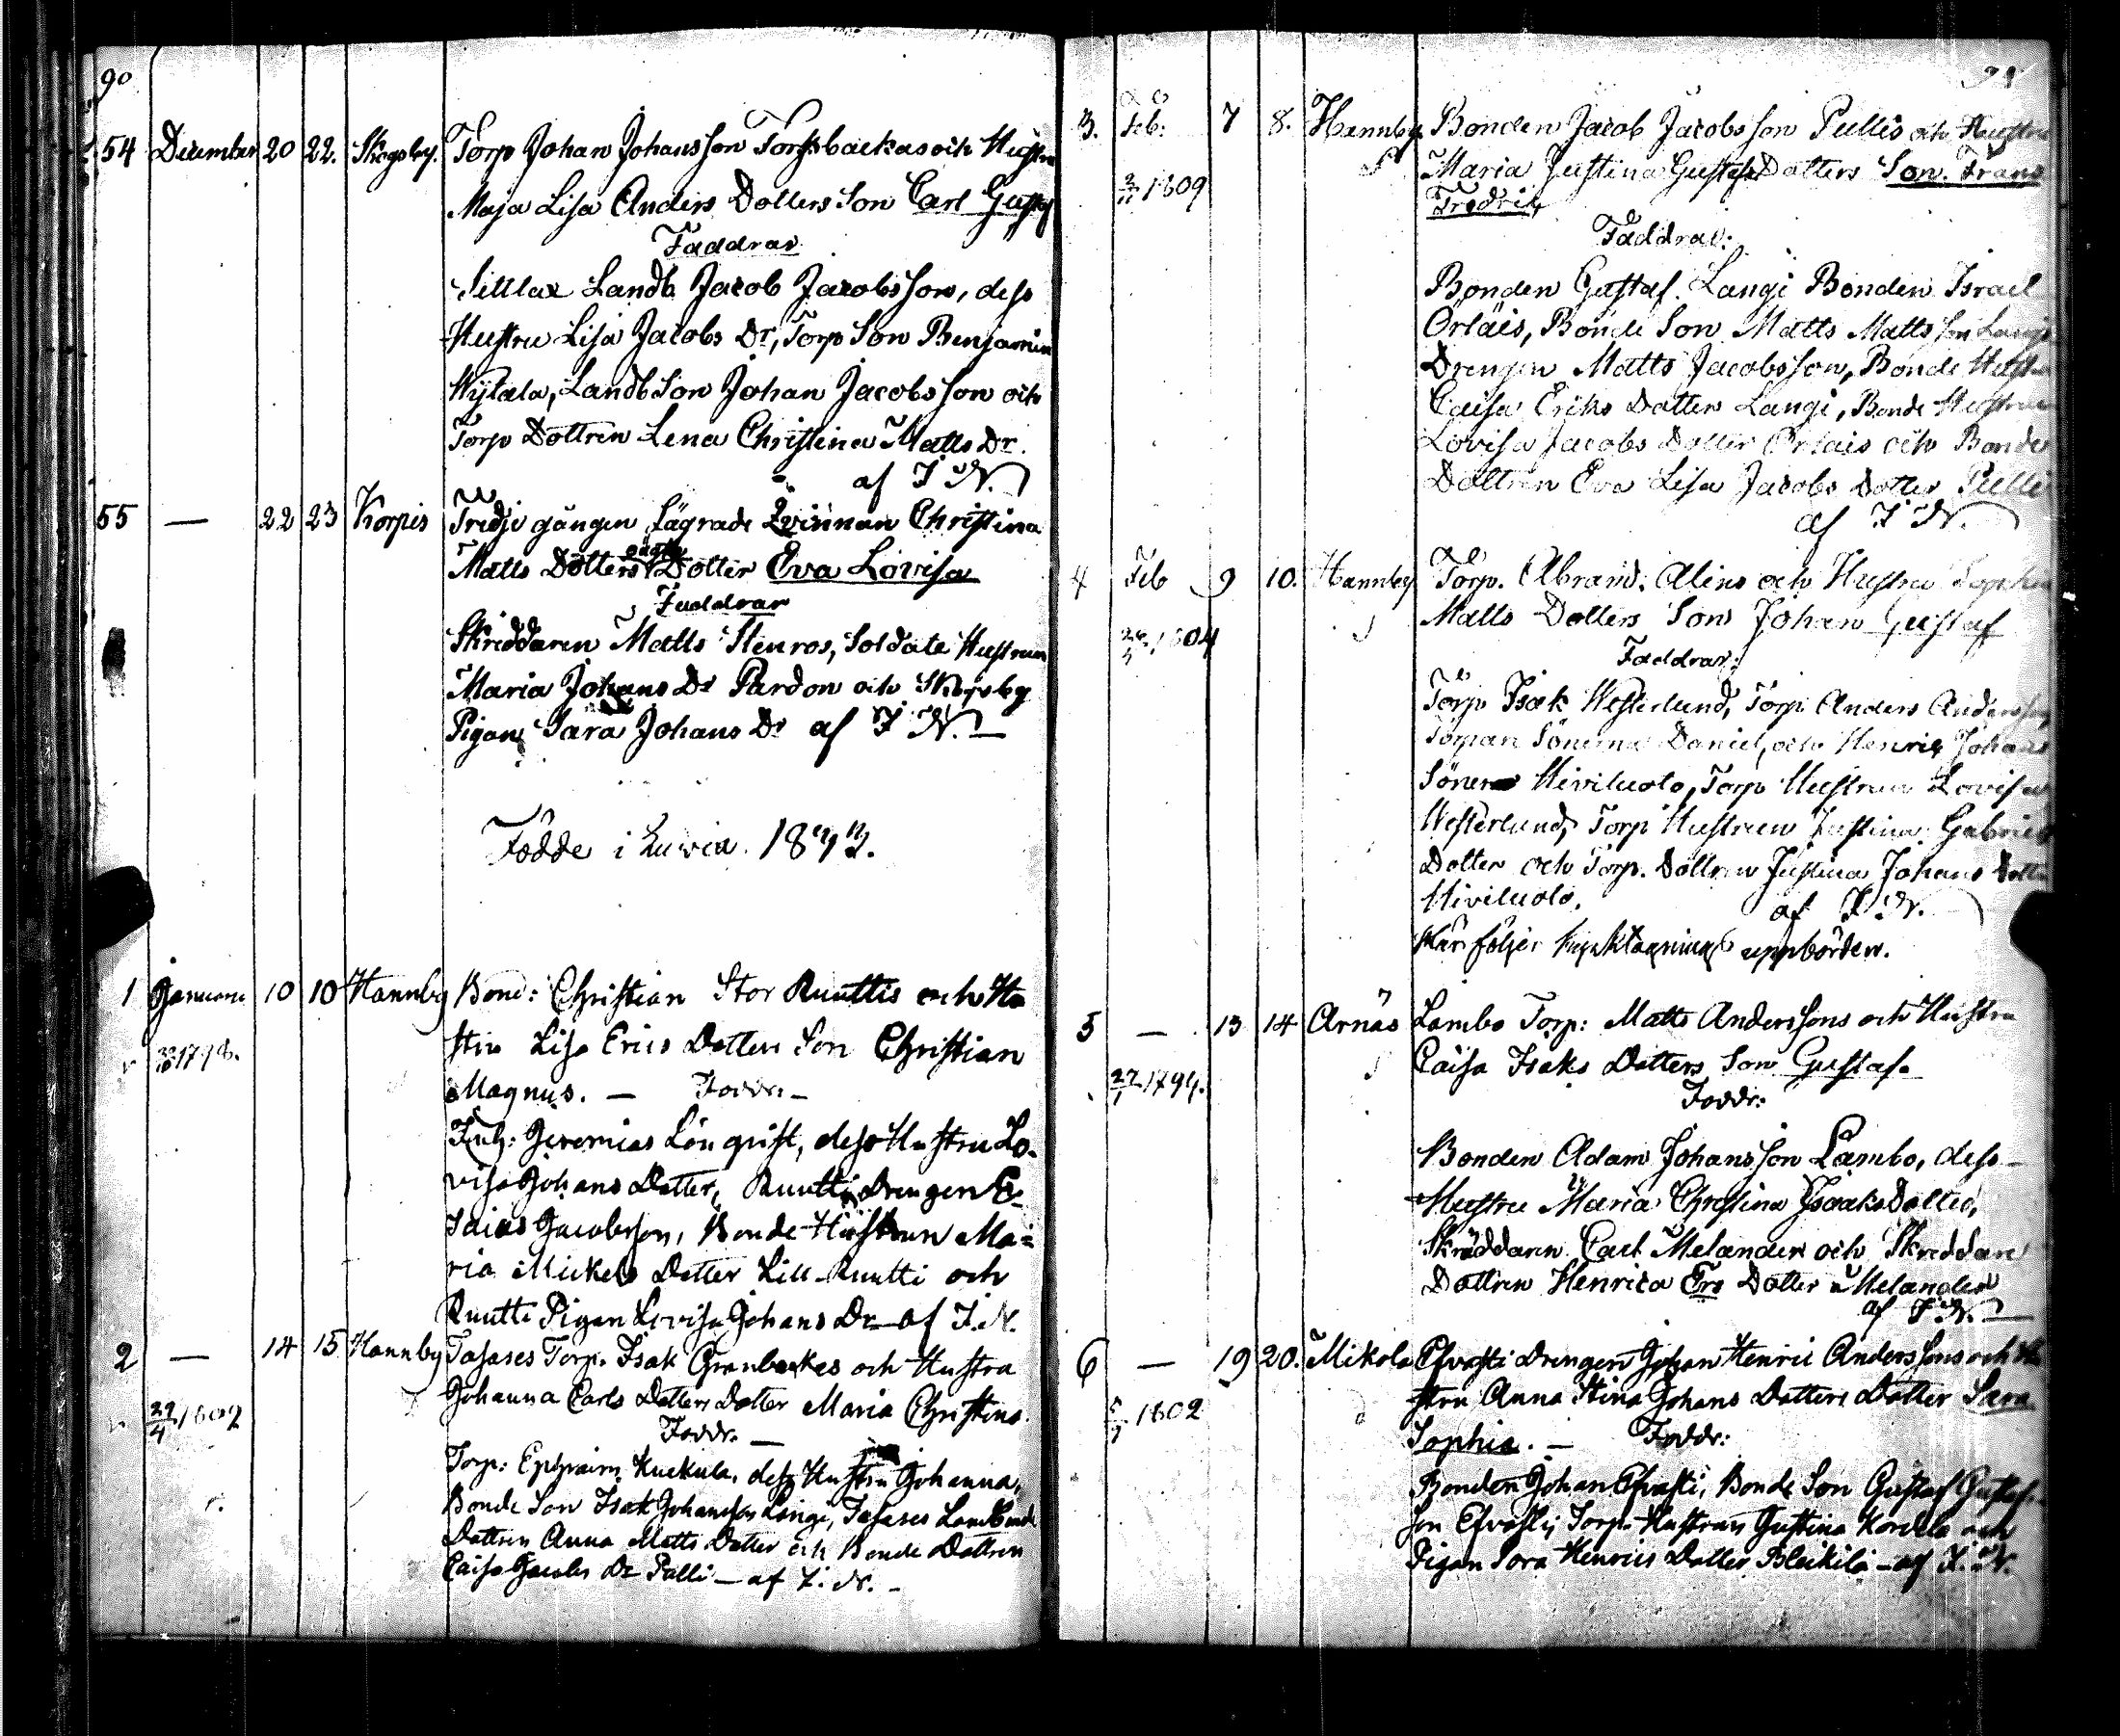 90
54 December 20 22. Skogsby. Torp Johan Johansson Torpbackas och Hustru
Maja Lisa Anders Dotters Son Carl Gustaf
Faddrar
Silllax Landb Jacob Jacobsson, dess
Hustru Lisa Jacobs Dr, Torp Son Benjamin
Wytala, Landb Son Johan Jacobsson och
Torp Dottren Lena Christina Matts Dr.
af I N.
55 — 22 23 Korpis Tredje gången Lägrade Qvinnan Christina
Matts Dotters oägta Dotter Eva Lovisa
Faddrar
Skräddaren Matts Stenros, Soldate Hustrun
Maria Johans Dr Pardon och Skogsby
Pigan Sara Johans Dr af I N. —
Födde i Luvia. 1843.
1 Januari 10 10 Hannby Bond: Christian Stor Ruuttis och Hu
stru Lisa Erics Dotters Son Christian
1798.
Magnus. — Faddr. —
Inh: Jeremias Lönqvist, dess Hustru Lo-
visa Johans Dotter, Ruutti Drengen E-
saias Jacobsson, Bonde Hustrun Ma=
ria Mickels Dotter Lill-Ruutti och
Ruutti Pigan Lovisa Johans Dr — af I. N.
2 — 14 15 Hannby Tasases Torp. Isak Granbackas och Hustru
Johanna Carls Dotters Dotter Maria Christina.
29/4 1802
Faddr. —
Torp: Ephraim Kuckula, dess Hustru Johanna,
Bonde Son Isak Johansson Långi, Tasases Landbonde
Dottren Anna Matts Dotter och Bonde Dottren
Caisa Jacobs Dr Pälli — af I. N. —
91
3. Feb: 7 8. Hannby Bonden Jacob Jacobsson Pullis och Hustru
Maria Justina Gustafs Dotters Son. Frans
1809
Fredrik
Faddrar:
Bonden Gustaf Långi Bonden Israel
Orläis, Bonde Son Matts Mattsson Långi
Drengen Matts Jacobsson, Bonde Hustrun
Caisa Eriks Dotter Långi, Bonde Hustrun
Lovisa Jacobs Dotter Orlais och Bonde
Dottren Eva Lisa Jacobs Dotter Pulli
af I N.
4 Feb 9 10. Hannby Torp. Abrah. Alins och Hustru Sophia
Matts Dotters Son Johan Gustaf
1804
Faddrar:
Torp Isak Westerlund, Torp Anders Andersson,
Torpare Sönerne Daniel, och Henrik Johans
Söner Hiviluoto, Torp Hustrun Lovisa
Westerlund, Torp Hustrun Justina Gabriels
Dotter och Torp. Dottren Justina Johans Dotter
Hiviluoto. af I N.
Här följer kyrktagnings uppbörden.
5 — 13 14 Arnäs Lambo Torp: Matts Anderssons och Hustru
Caisa Isaks Dotters Son Gustaf.
27/1 1794.
Faddr:
Bonden Adam Johansson Lambo, dess
Hustru Maria Christina Isaaks Dotter,
Skräddaren Carl Melander och Skreddare
Dottren Henrica Ers Dotter Melander
af I N. —
6 — 19 20. Mikola Efvasti Drengen Johan Henric Anderssons och Hu
stru Anna Stina Johans Dotters Dotter Sara
1802
Sophia. — Faddr:
Bonden Johan Efvasti, Bonde Son Gustaf Gustafs-
son Efvasti, Torp. Hustrun Justina Kordela och
Pigan Sara Henrics Dotter Bleikilä — af I. N.